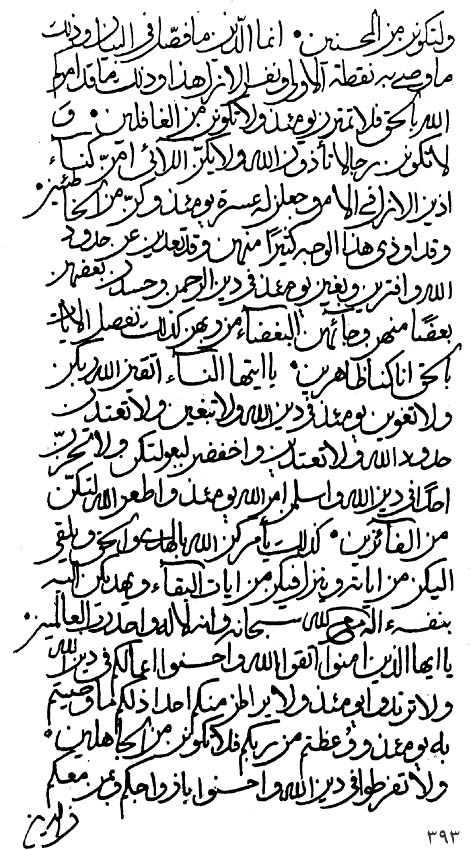 ولتكونن من المحسنين. انما الدين ما فصل فى البيان وذلك
ما وصى به نقطة الاولى ونفسه الازل هذا وذلك ما قد امركم
الله بالحق فلا تمترن يومئذ ولا تكونن من الغافلين. و
لا تكونن رجالا تأذون الله ولا يكن اللائى امن كنساء
اذين الازل فى الامر وجعلن له عسرة يومئذ وكن من الخاطئين.
وقد اوذى هذا الوجه كثيرا منهن وقد تعدين عن حدود
الله وافترين وبغين يومئذ فى دين الرحمن وحسدن بعضهن
بعضا منهن وجائهن البغضاء من ربهن كذلك نفصل الايات
بالحق انا كنا ظاهرين. يا ايتها النساء اتقين الله ربكن
ولا تغوين يومئذ فى دين الله ولا تبغين ولا تعتدن
حدود الله ولا تعتدين واخفضن لبعولتكن ولا تحزن
احدا فى دين الله واسلمن امر الله يومئذ واطعن الله لتكن
من الفائزين. كذلك يأمركن الله بالهدى والحق ويلقى
اليكن من اياته وينزل فيكن من ايات البقاء ويهديكن اليه
بنفسه اله مع الله سبحانه وانه لاله واحد رب العالمين.
يا ايها الذين امنوا اتقوا الله واحسنوا اعمالكم فى دين الله
ولا ترتدوا يومئذ ولا يراطن منكم احدا ذلكم لما وصيتم
به يومئذ ووعظتم من ربكم فلا تكونن من الجاهلين.
ولا تفرطوا فى دين الله واحسنوا بازواجكم وبمن معكم
٣٩٣